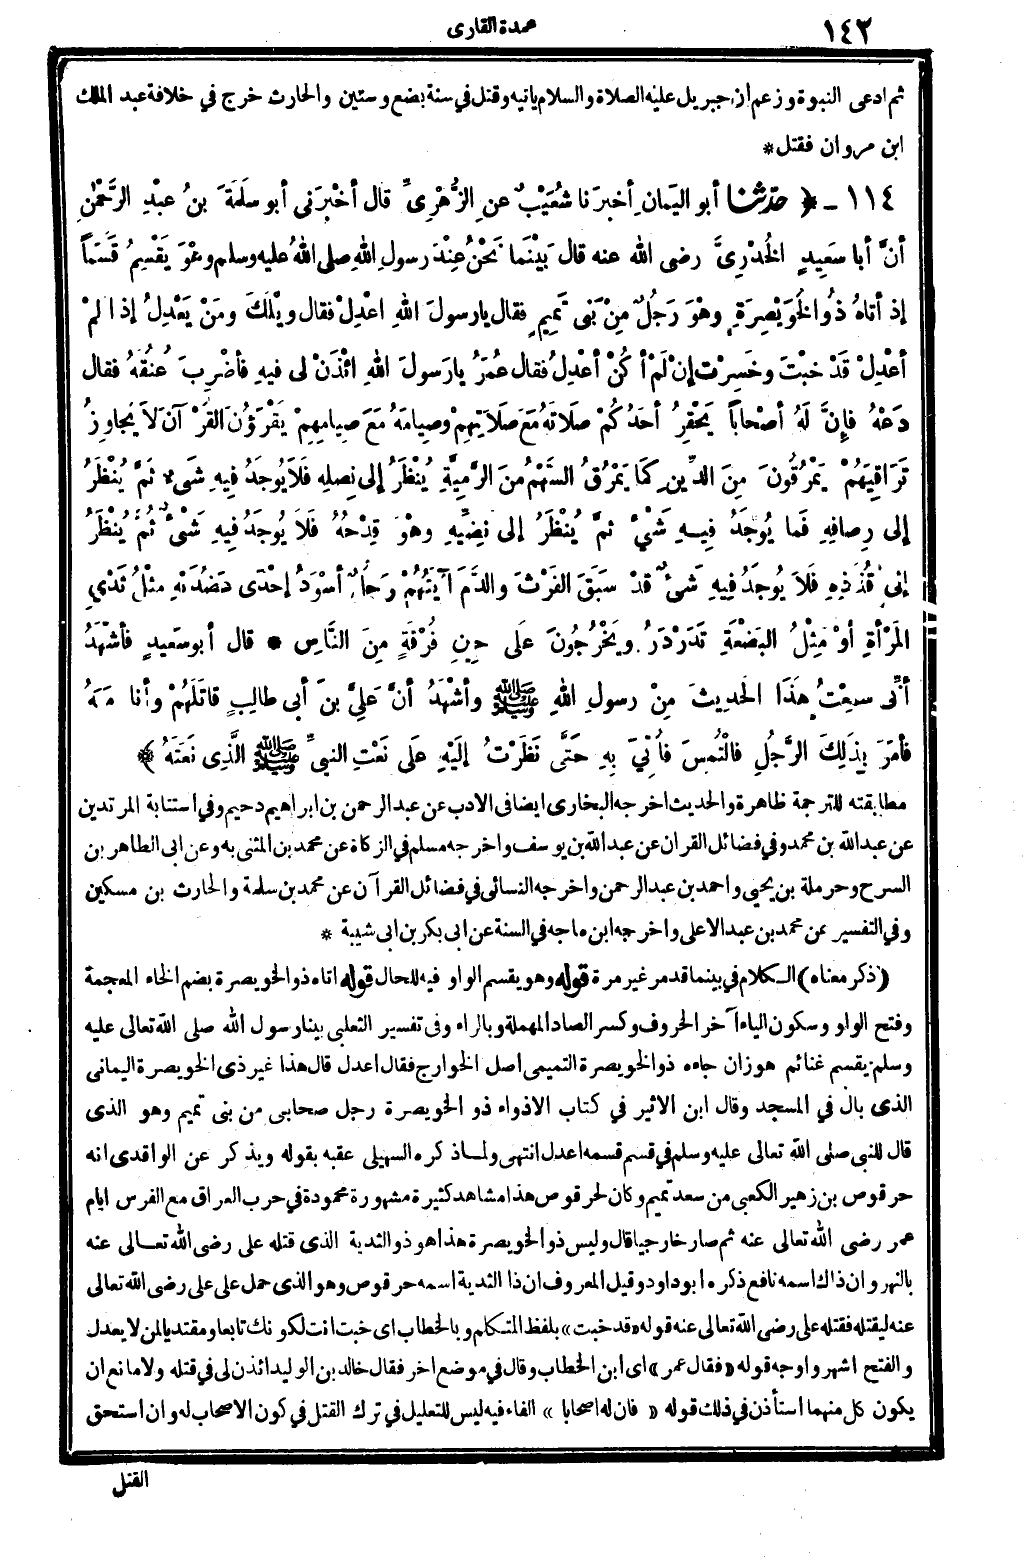 ١٤٢
عمدة القارى
ثم ادعى النبوة وزعم ان جبريل عليه الصلاة والسلام ياتيه وقتل في سنة بضع وستين والحارث خرج في خلافة عبد الملك
ابن مروان فقتل *
١١٤ - ﴿ حَدَّثَنَا أبو اليَمَانِ أخبرَنا شُعَيْبٌ عنِ الزُّهْرِىِّ قال أخْبرَنى أبو سلَمَةَ بنُ عبْدِ الرَّحْمٰنِ
أنَّ أبا سَعِيدٍ الخُدْرِىَّ رضى الله عنه قال بَيْنَما نَحْنُ عِنْدَ رسولِ اللهِ صلى اللهُ عليه وسلم وهْوَ يَقْسِمُ قَسْماً
إذ أتاهُ ذُو الخُوَيْصِرَةِ وهْوَ رَجُلٌ مِنْ بَنى تَمِيمٍ فقال يارسولَ اللهِ اعْدِلْ فقال ويْلَكَ ومَنْ يَعْدِلُ إذا لَمْ
أعْدِلْ قَدْ خبْتَ وخَسِرْتَ إنْ لَمْ أكُنْ أعْدِلُ فقال عُمَرُ يارَسولَ اللهِ ائْذَنْ لى فيهِ فأضْرِبَ عُنُقَهُ فقال
دَعْهُ فإنَّ لَهُ أصْحاباً يَحْقِرُ أحَدُكُمْ صلاتَهُ مَعَ صَلاَتِهِمْ وصِيامَهُ مَعَ صِيامِهِمْ يَقْرَؤُنَ القُرْآنَ لاَ يُجاوِزُ
تَرَاقِيَهُمْ يَمْرُقُونَ مِنَ الدِّينِ كَمَا يَمْرُقُ السَّهْمُ مِنَ الرَّمِيَّةِ يُنْظَرُ إلى نصلِهِ فَلاَ يُوجَدُ فيهِ شَىءٌ ثمَّ يُنْظَرُ
إلى رِصافِهِ فَما يُوجَدُ فِيهِ شَيْءٌ ثمَّ يُنْظَرُ إلى نَضِيِّهِ وهْوَ قِدْحُهُ فَلاَ يُوجَدُ فيهِ شَىْءٌ ثُمَّ يُنْظَرُ
إلى قُذَذِهِ فَلاَ يُوجَدُ فِيهِ شَىءٌ قدْ سبَقَ الفَرْثَ والدَّمَ آيَتُهُمْ رَجُلٌ أسْوَدُ إحْدَى عَضُدَيْهِ مثْلُ ثَدْيِ
المَرْأةِ أوْ مِثْلُ البَضْعَةِ تَدَرْدَرُ ويَخْرُجُونَ عَلَى حِينِ فُرْقَةٍ مِنَ النَّاسِ * قال أبو سَعيدٍ فأشْهَدُ
أنِّى سمِعْتُ هَذَا الحَدِيثَ مِنْ رسولِ اللهِ ﷺ وأشْهَدُ أنَّ عَلِيَّ بنَ أبى طالِبٍ قاتَلَهُمْ وأنا مَعَهُ
فأمَرَ بِذَلِكَ الرَّجُلِ فالْتُمِسَ فأُتِيَ بِهِ حَتَّى نَظَرْتُ إلَيْهِ عَلَى نَعْتِ النبيِّ ﷺ الَّذِى نَعَتَهُ * ﴾
مطابقته للترجمة ظاهرة والحديث اخرجه البخارى ايضا فى الادب عن عبد الرحمن بن ابراهيم دحيم وفي استتابة المرتدين
عن عبد الله بن محمد وفي فضائل القران عن عبد الله بن يوسف واخرجه مسلم في الزكاة عن محمد بن المثنى به وعن ابى الطاهر بن
السرح وحرملة بن يحيى واحمد بن عبد الرحمن واخرجه النسائى في فضائل القرآن عن محمد بن سلمة والحارث بن مسكين
وفي التفسير عن محمد بن عبد الاعلى واخرجه ابن ماجه في السنة عن ابى بكر بن ابى شيبة *
(ذكر معناه) الكلام في بينما قد مر غير مرة قوله وهو يقسم الواو فيه للحال قوله اتاه ذو الخويصرة بضم الخاء المعجمة
وفتح الواو وسكون الياء آخر الحروف وكسر الصاد المهملة وبالراء وفى تفسير الثعلبى بينا رسول الله صلى الله تعالى عليه
وسلم يقسم غنائم هوازن جاءه ذو الخويصرة التميمى اصل الخوارج فقال اعدل قال هذا غير ذى الخويصرة اليمانى
الذى بال في المسجد وقال ابن الاثير في كتاب الاذواء ذو الخويصرة رجل صحابى من بنى تميم وهو الذى
قال للنبى صلى الله تعالى عليه وسلم في قسم قسمه اعدل انتهى ولما ذكره السهيلى عقبه بقوله ويذكر عن الواقدى انه
حرقوص بن زهير الكعبى من سعد تميم وكان لحرقوص هذا مشاهد كثيرة مشهورة محمودة في حرب العراق مع الفرس ايام
عمر رضى الله تعالى عنه ثم صار خارجيا قال وليس ذو الخويصرة هذا هو ذو الثدية الذى قتله على رضى الله تعالى عنه
بالنهروان ذاك اسمه نافع ذكره ابو داود وقيل المعروف ان ذا الثدية اسمه حرقوص وهو الذى حمل على على رضى الله تعالى
عنه ليقتله فقتله على رضى الله تعالى عنه قوله «قد خبت» بلفظ المتكلم وبالخطاب اى خبت انت لكونك تابعا ومقتديا لمن لا يعدل
والفتح اشهر واوجه قوله «فقال عمر» اى ابن الخطاب وقال في موضع اخر فقال خالد بن الوليد ائذن لى في قتله ولا مانع ان
يكون كل منهما استأذن في ذلك قوله « فان له اصحابا » الفاء فيه ليس للتعليل في ترك القتل في كون الاصحاب له وان استحق
القتل